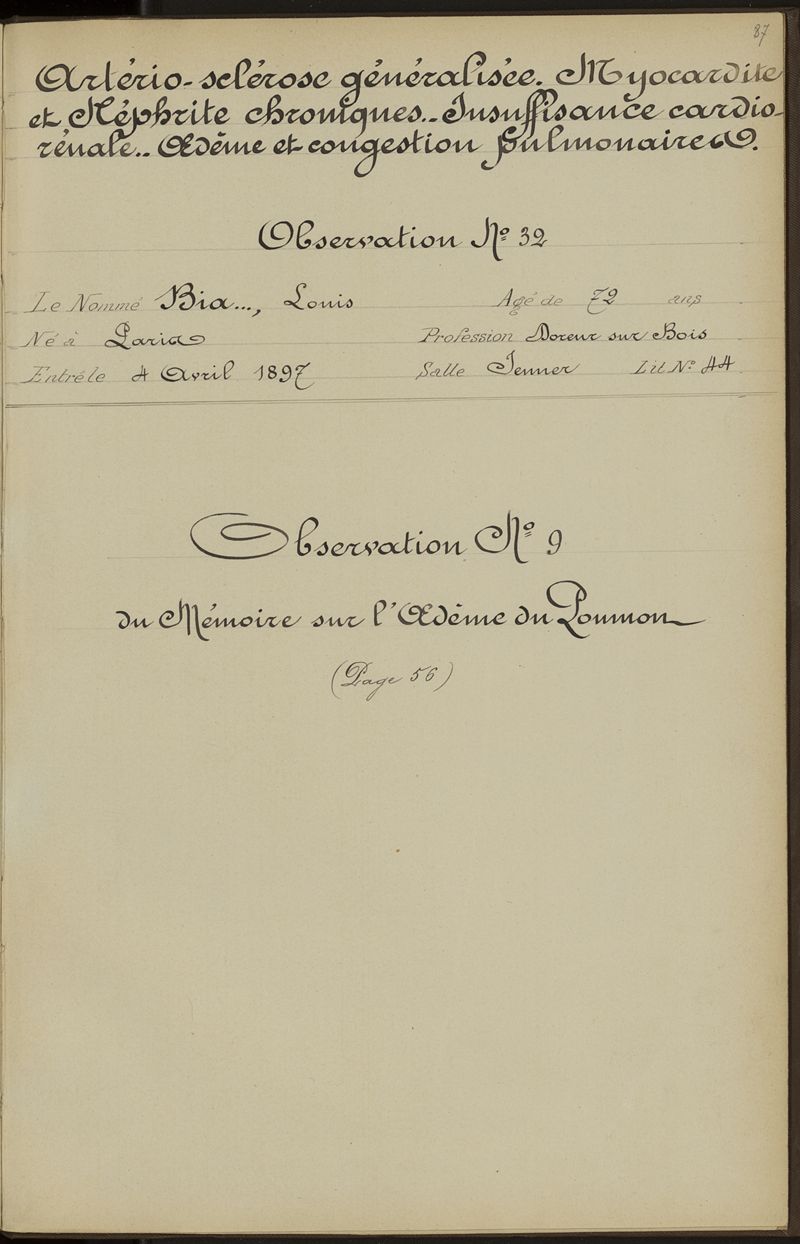 87
Artério-sclérose généralisée. Myocardite
et Néphrite chroniques.. Insuffisance cardio-
rénale.. Œdème et congestion pulmonaires.
Observation Nº 32
Le Nommé Bia..., Louis Agé de 72 ans
Né à Paris Profession Doreur sur Bois
Entré le 4 Avril 1897 Salle Jenner Lit Nº 44
Observation Nº 9
du Mémoire sur l'Œdème du Poumon
(Page 56)